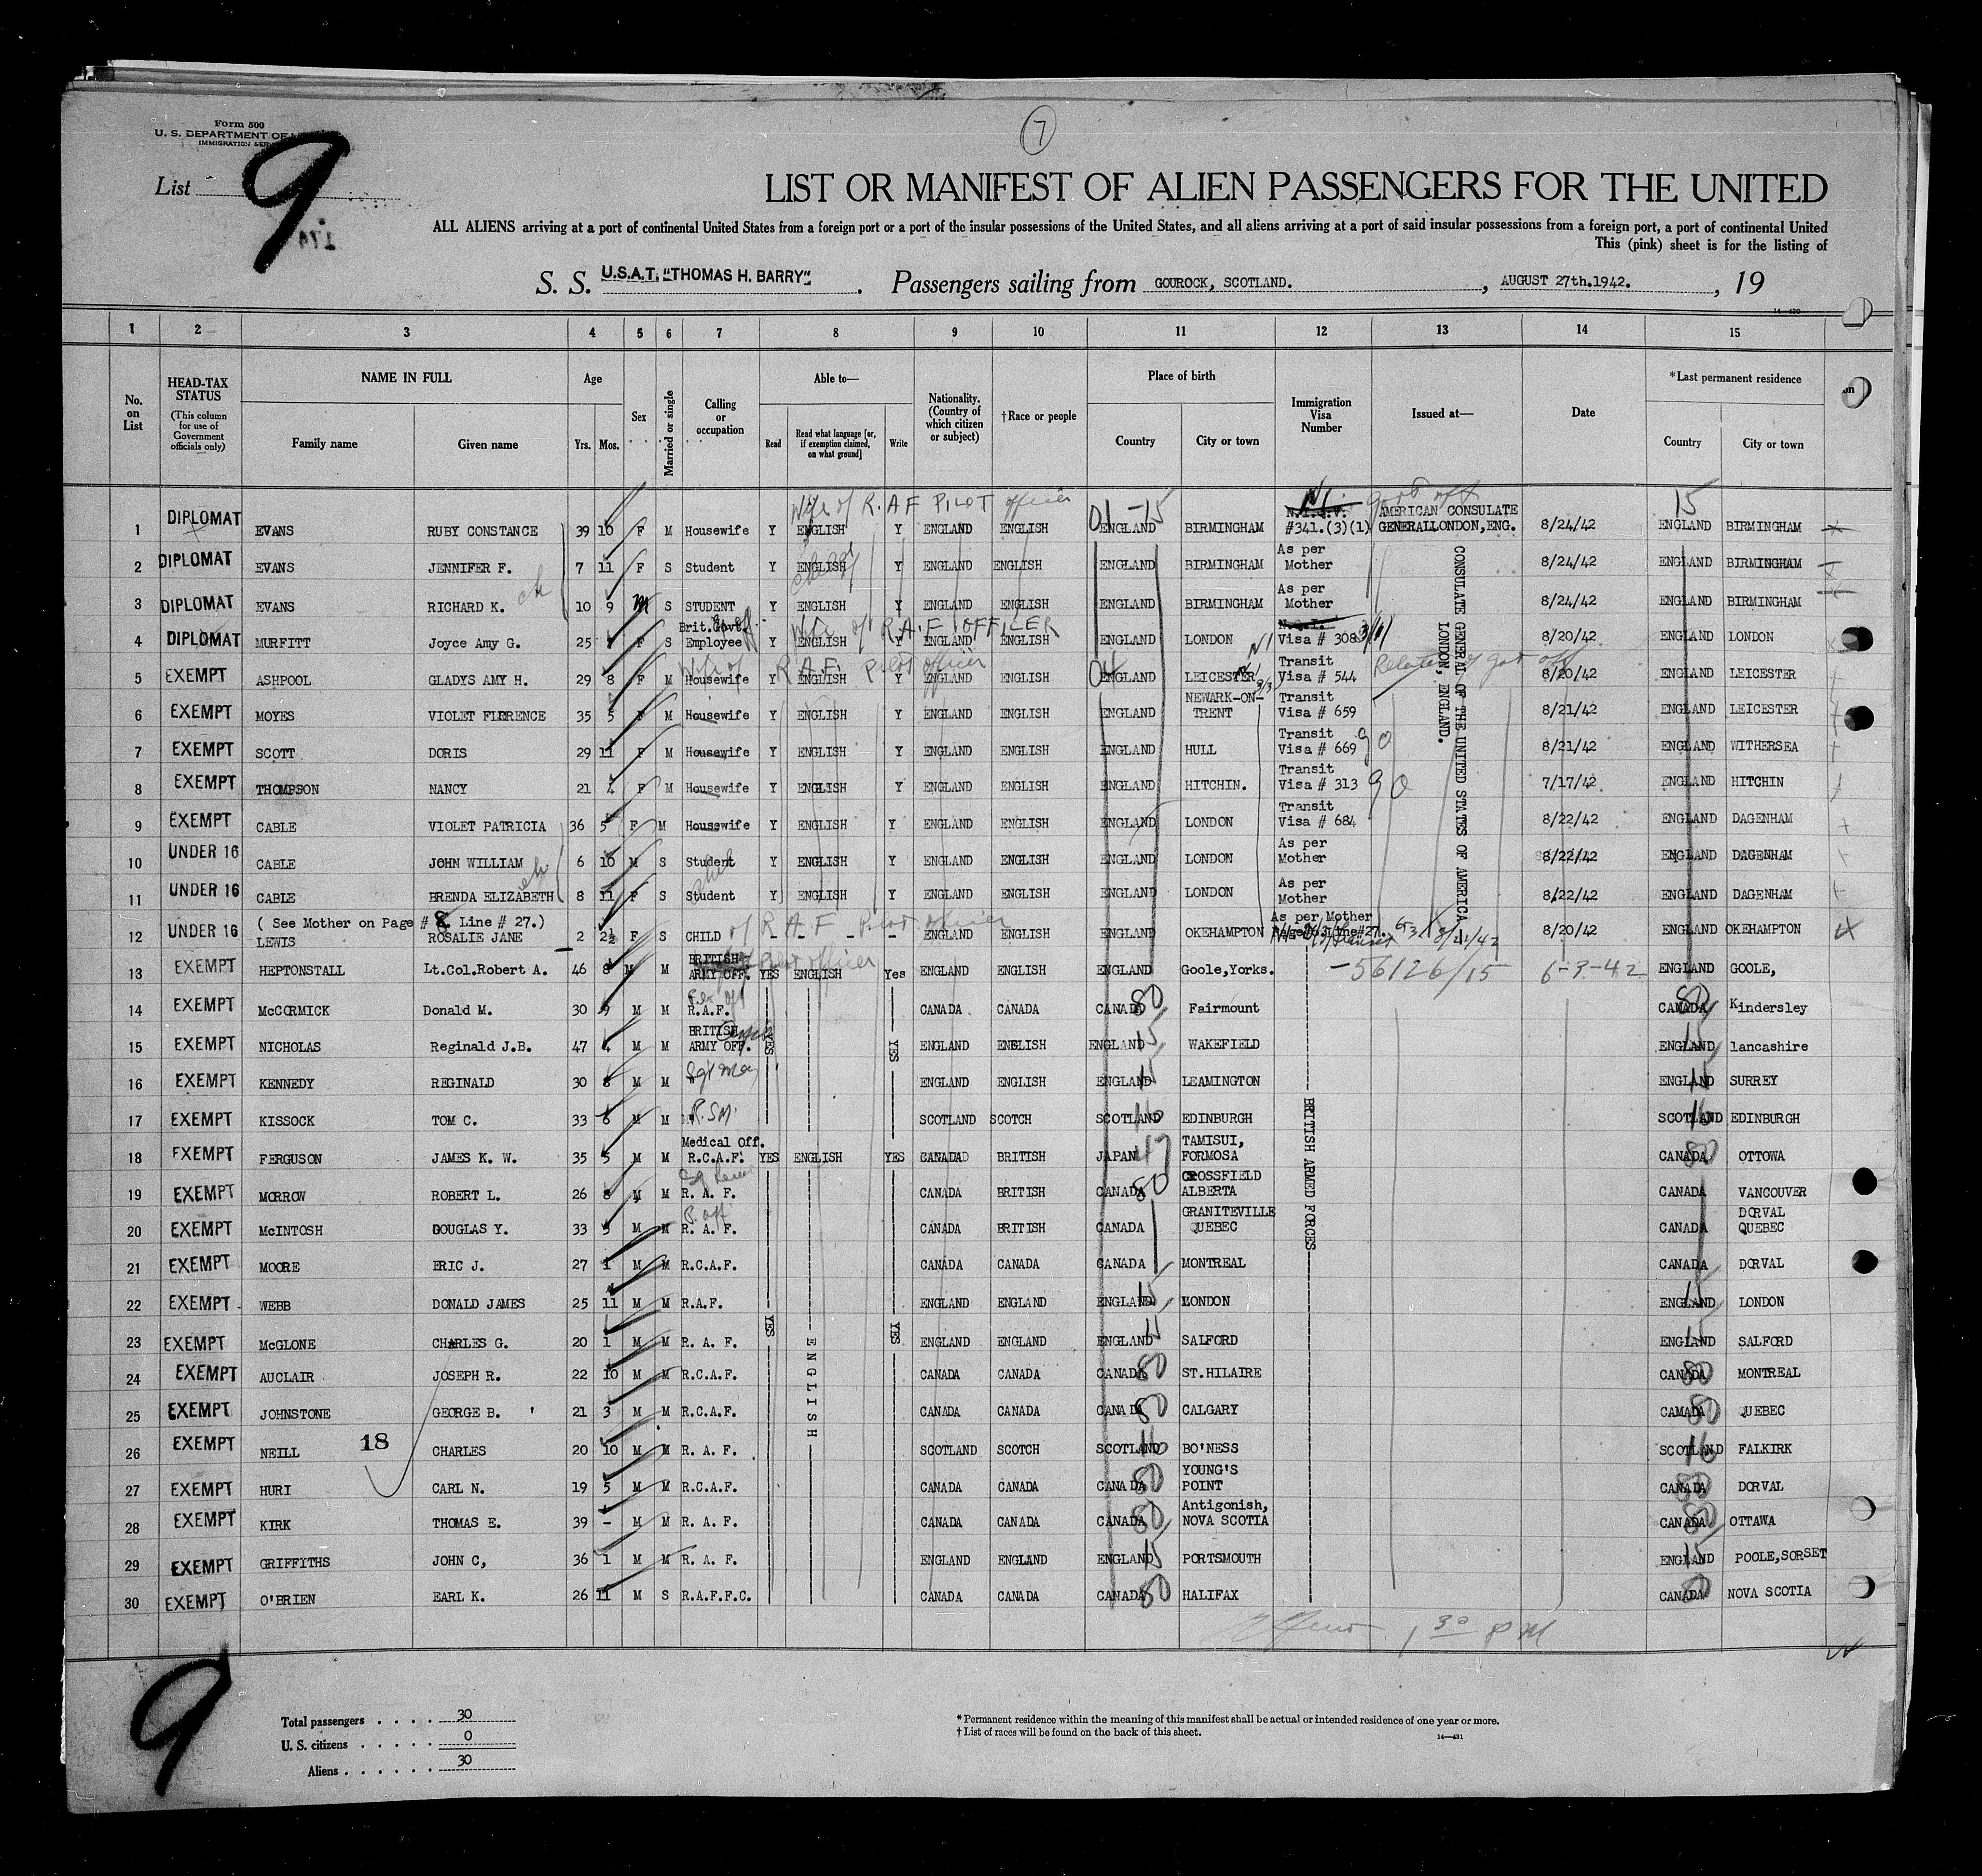 Form 500
U. S. DEPARTMENT OF
IMMIGRATION SER
7
List 9
LIST OR MANIFEST OF ALIEN PASSENGERS FOR THE UNITED
ALL ALIENS arriving at a port of continental United States from a foreign port or a port of the insular possessions of the United States, and all aliens arriving at a port of said insular possessions from a foreign port, a port of continental United
This (pink) sheet is for the listing of
S. S. U.S.A.T. "THOMAS H. BARRY" . Passengers sailing from GOUROCK, SCOTLAND. , AUGUST 27th.1942. , 19
14—430
1 2 3 4 5 6 7 8 9 10 11 12 13 14 15
No. on List
HEAD-TAX STATUS (This column for use of Government officials only)
NAME IN FULL Family name Given name
Age Yrs. Mos.
Sex
Married or single
Calling or occupation
Able to— Read Read what language [or, if exemption claimed, on what ground] Write
Nationality. (Country of which citizen or subject)
†Race or people
Place of birth Country City or town
Immigration Visa Number
Issued at—
Date
*Last permanent residence Country City or town
Wife of R.A.F PILOT officer 01-15 govt off 15
1 DIPLOMAT EVANS RUBY CONSTANCE 39 10 F M Housewife Y ENGLISH Y ENGLAND ENGLISH ENGLAND BIRMINGHAM #341.(3)(1) AMERICAN CONSULATE GENERAL LONDON, ENG. 8/24/42 ENGLAND BIRMINGHAM
2 DIPLOMAT EVANS JENNIFER F. 7 11 F S Student Y ENGLISH Y ENGLAND ENGLISH ENGLAND BIRMINGHAM As per Mother 8/24/42 ENGLAND BIRMINGHAM
3 DIPLOMAT EVANS RICHARD K. 10 9 M S STUDENT Y ENGLISH Y ENGLAND ENGLISH ENGLAND BIRMINGHAM As per Mother 8/24/42 ENGLAND BIRMINGHAM
Wife of R.A.F OFFICER
4 DIPLOMAT MURFITT Joyce Amy G. 25 F S Brit.Govt. Employee Y ENGLISH Y ENGLAND ENGLISH ENGLAND LONDON Visa # 308 8/20/42 ENGLAND LONDON
Wife of R.A.F. Pilot officer 04 Relative of gov off
5 EXEMPT ASHPOOL GLADYS AMY H. 29 8 F M Housewife Y ENGLISH Y ENGLAND ENGLISH ENGLAND LEICESTER Transit Visa # 544 8/20/42 ENGLAND LEICESTER
6 EXEMPT MOYES VIOLET FLORENCE 35 5 F M Housewife Y ENGLISH Y ENGLAND ENGLISH ENGLAND NEWARK-ON-TRENT Transit Visa # 659 8/21/42 ENGLAND LEICESTER
7 EXEMPT SCOTT DORIS 29 11 F M Housewife Y ENGLISH Y ENGLAND ENGLISH ENGLAND HULL Transit Visa # 669 go 8/21/42 ENGLAND WITHERSEA
8 EXEMPT THOMPSON NANCY 21 4 F M Housewife Y ENGLISH Y ENGLAND ENGLISH ENGLAND HITCHIN. Transit Visa # 313 go 7/17/42 ENGLAND HITCHIN
9 EXEMPT CABLE VIOLET PATRICIA 36 5 F M Housewife Y ENGLISH Y ENGLAND ENGLISH ENGLAND LONDON Transit Visa # 684 8/22/42 ENGLAND DAGENHAM
10 UNDER 16 CABLE JOHN WILLIAM 6 10 M S Student Y ENGLISH Y ENGLAND ENGLISH ENGLAND LONDON As per Mother 8/22/42 ENGLAND DAGENHAM
11 UNDER 16 CABLE BRENDA ELIZABETH 8 11 F S Student Y ENGLISH Y ENGLAND ENGLISH ENGLAND LONDON As per Mother 8/22/42 ENGLAND DAGENHAM
CONSULATE GENERAL OF THE UNITED STATES OF AMERICA
LONDON, ENGLAND.
( See Mother on Page # 8. Line # 27.) of R A F Pilot officer
12 UNDER 16 LEWIS ROSALIE JANE 2 2½ F S CHILD - - - - ENGLAND ENGLISH ENGLAND OKEHAMPTON As per Mother 8/21/42 8/20/42 ENGLAND OKEHAMPTON
13 EXEMPT HEPTONSTALL Lt.Col.Robert A. 46 8 M M BRITISH ARMY OFF. YES ENGLISH Yes ENGLAND ENGLISH ENGLAND Goole,Yorks. -56126/15 6-3-42 ENGLAND GOOLE,
14 EXEMPT McCORMICK Donald M. 30 9 M M R.A.F. CANADA CANADA CANADA 80 Fairmount CANADA 80 Kindersley
15 EXEMPT NICHOLAS Reginald J.B. 47 4 M M BRITISH ARMY OFF. YES YES ENGLAND ENGLISH ENGLAND 15 WAKEFIELD ENGLAND 15 lancashire
16 EXEMPT KENNEDY REGINALD 30 8 M M Sgt Maj ENGLAND ENGLISH ENGLAND 15 LEAMINGTON ENGLAND 15 SURREY
17 EXEMPT KISSOCK TOM C. 33 6 M M R.SM. SCOTLAND SCOTCH SCOTLAND 16 EDINBURGH SCOTLAND 16 EDINBURGH
18 EXEMPT FERGUSON JAMES K. W. 35 5 M M Medical Off. R.C.A.F. YES ENGLISH YES CANADAD BRITISH JAPAN 47 TAMISUI, FORMOSA CANADA 80 OTTOWA
19 EXEMPT MORROW ROBERT L. 26 8 M M R. A. F. CANADA BRITISH CANADA 80 CROSSFIELD ALBERTA CANADA VANCOUVER
20 EXEMPT McINTOSH DOUGLAS Y. 33 5 M M P. off R. A. F. CANADA BRITISH CANADA GRANITEVILLE QUEBEC CANADA DORVAL QUEBEC
21 EXEMPT MOORE ERIC J. 27 1 M M R.C.A.F. CANADA CANADA CANADA MONTREAL CANADA DORVAL
22 EXEMPT WEBB DONALD JAMES 25 11 M M R.A.F. ENGLAND ENGLAND ENGLAND 15 LONDON ENGLAND 15 LONDON
23 EXEMPT McGLONE CHARLES G. 20 1 M M R. A. F. YES ENGLISH YES ENGLAND ENGLAND ENGLAND 15 SALFORD ENGLAND 15 SALFORD
24 EXEMPT AUCLAIR JOSEPH R. 22 10 M M R.C.A.F. CANADA CANADA CANADA 80 ST.HILAIRE CANADA 80 MONTREAL
25 EXEMPT JOHNSTONE GEORGE B. 21 3 M M R.C.A.F. CANADA CANADA CANADA 80 CALGARY CAMADA 80 QUEBEC
26 EXEMPT NEILL 18 CHARLES 20 10 M M R. A. F. SCOTLAND SCOTCH SCOTLAND 16 BO'NESS SCOTLAND 16 FALKIRK
27 EXEMPT HURI CARL N. 19 5 M M R.C.A.F. CANADA CANADA CANADA 80 YOUNG'S POINT CANADA 80 DORVAL
28 EXEMPT KIRK THOMAS E. 39 - M M R. A. F. CANADA CANADA CANADA 80 Antigonish, NOVA SCOTIA CANADA 80 OTTAWA
29 EXEMPT GRIFFITHS JOHN C, 36 1 M M R. A. F. ENGLAND ENGLAND ENGLAND 15 PORTSMOUTH ENGLAND 15 POOLE,SORSET
30 EXEMPT O'BRIEN EARL K. 26 11 M S R.A.F.F.C. CANADA CANADA CANADA 80 HALIFAX CANADA 80 NOVA SCOTIA
BRITISH ARMED FORCES
1 30 PM
9
Total passengers . . . . 30
U. S. citizens . . . . . 0
Aliens . . . . . . 30
* Permanent residence within the meaning of this manifest shall be actual or intended residence of one year or more.
† List of races will be found on the back of this sheet.
14—431